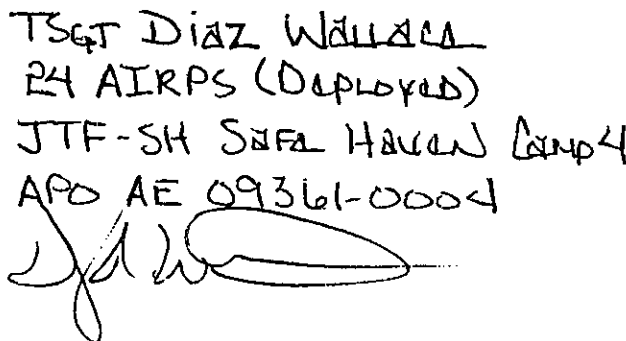 TSGT Diaz Wallace
24 AIRPS (Deployed)
JTF-SH Safe Haven Camp 4
APO AE 09361-0004